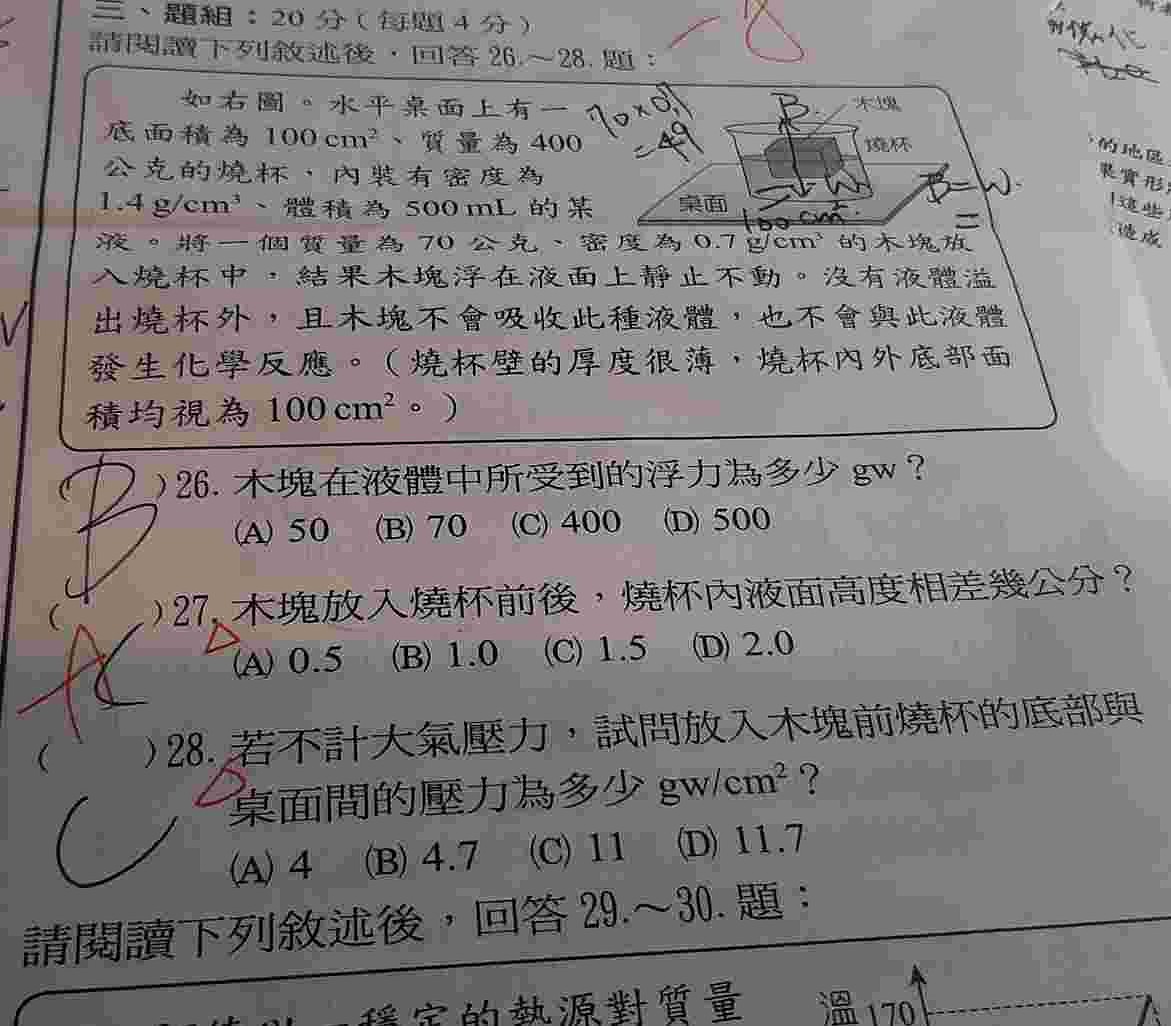 三、題組：20 分（每題 4 分）
請閱讀下列敘述後，回答 26.～28. 題：
如右圖。水平桌面上有一
底面積為 100 cm²、質量為 400
公克的燒杯，內裝有密度為
1.4 g/cm³、體積為 500 mL 的某
液。將一個質量為 70 公克、密度為 0.7 g/cm³ 的木塊放
入燒杯中，結果木塊浮在液面上靜止不動。沒有液體溢
出燒杯外，且木塊不會吸收此種液體，也不會與此液體
發生化學反應。（燒杯壁的厚度很薄，燒杯內外底部面
積均視為 100 cm²。）
70×0.7
=49
B
木塊
燒杯
桌面
W
100 cm²
B=W.
-8
的地區
這些
造成
B
)26. 木塊在液體中所受到的浮力為多少 gw？
(A) 50 (B) 70 (C) 400 (D) 500
( )27. 木塊放入燒杯前後，燒杯內液面高度相差幾公分？
A
(A) 0.5 (B) 1.0 (C) 1.5 (D) 2.0
( )28. 若不計大氣壓力，試問放入木塊前燒杯的底部與
桌面間的壓力為多少 gw/cm²？
C
(A) 4 (B) 4.7 (C) 11 (D) 11.7
請閱讀下列敘述後，回答 29.～30. 題：
一穩定的熱源對質量
溫 170